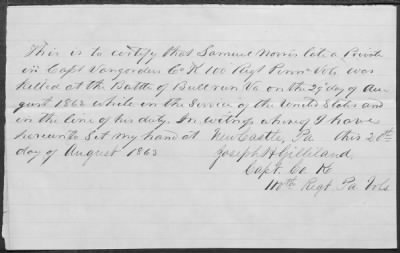 This is to certify that Samuel Norris late a Private
in Capt Vangorders Co K 100 Regt Penn Vols was
killed at the Battle of Bull run Va on the 29 day of Au-
gust 1862 while in the Service of the United States and
in the line of his duty. In witness whereof I have
hereunto Set my hand at New Castle, Pa this 20th
day of August 1863
Joseph H Gilliland,
Capt. Co K
100th Regt Pa Vols